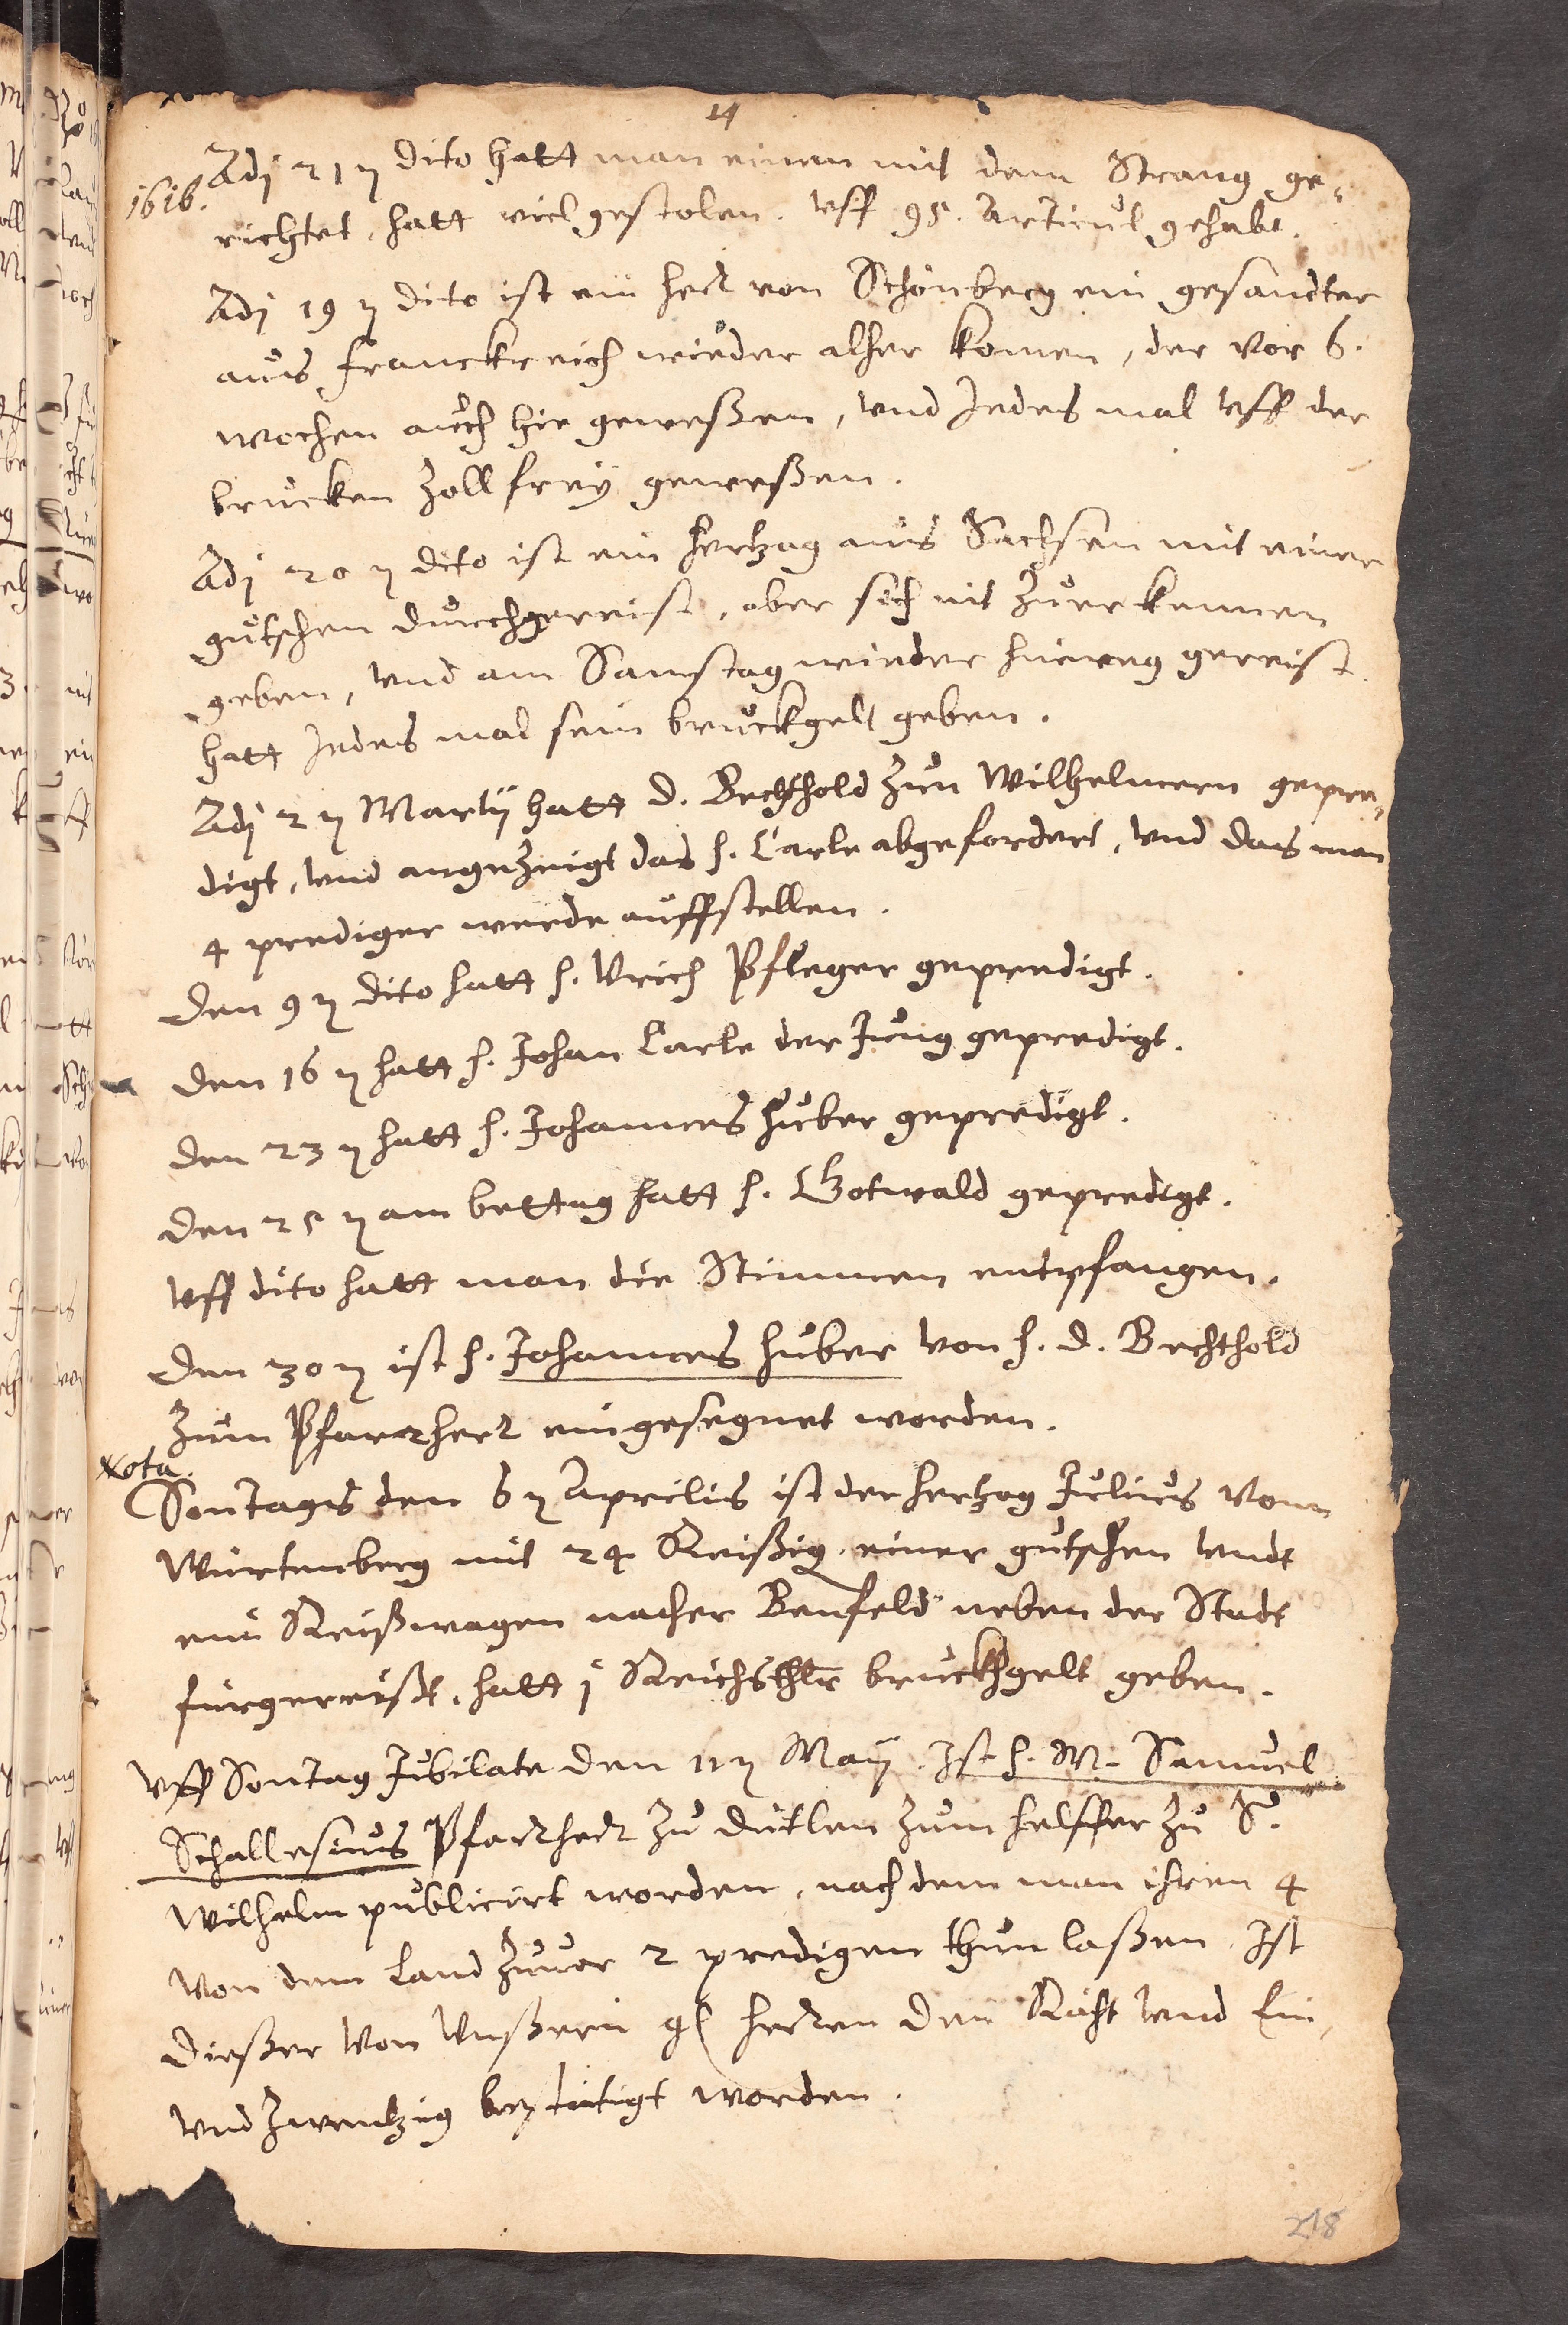 14
1616.
Adj 21 ꝛ dito hatt man einen mit dem Strang ge-
richtet, hatt viel gestolen. Vff 95. Articul gehabt.
Adj 19 ꝛ dito ist ein herr von Schönberg ein gesandter
aus franckreich wieder alher komen, der vor 6.
wochen auch hie geweßen, vnd Jedes mal vff der
brucken Zollfreÿ geweßen.
Adj 20 ꝛ dito ist ein hertzog aus Sachsen mit einer
gutschen durchgereist, aber sich nit Zuerkennen
geben, vnd am Samstag wieder hinweg gereist.
hatt Jedes mal sein bruckgelt geben.
Adj 2 ꝛ Martij hatt D. Bechthold Zun Wilhelmern gepre-
digt, vnd angezeigt das h. Carle abgefordert, vnd das man
4 prediger werde auffstellen.
Den 9 ꝛ dito hatt h. Vrich Pfleger gepredigt.
Den 16 ꝛ hatt h. Johan Carle der Jung gepredigt.
Den 23 ꝛ hatt h. Johannes huber gepredigt.
Den 25 ꝛ am bettag hatt h. Gotwald gepredigt.
Vff dito hatt man die Stimmen entpfangen.
Den 30 ꝛ ist h. Johannes huber von h. D. Bechthold
Zum Pfarrherr eingesegnet worden.
Nota.
Sontags den 6 ꝛ Aprilis ist der hertzog Julius von
Würtenberg mit 24 Reißig. einer gutschen vndt
ein Reißwagen nacher Benfeld neben der Stadt
fürgereißt, hatt j Reichsthlr bruckhgelt geben.
Vff Sontag Jubilate den 11 ꝛ Maij. Ist h. M. Samuel
Schallesius Pfarrherr Zu Dütlen Zum helffer Zu S.
Wilhelm publicirt worden, nach dem man ihren 4
von dem Land Zuuor 2 predigen thun laßen. Ist
dießer von Vnßern gl herren den Räht vnd Ein,
vnd Zwentzig bestätigt worden.
218